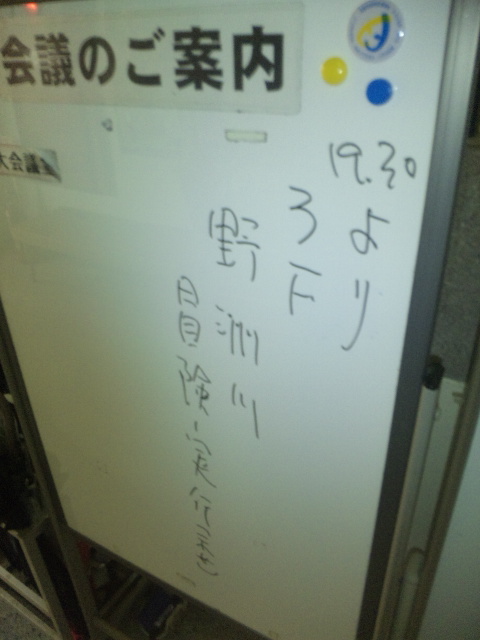 会議のご案内
大会議室
19.30
より
ろ下
野洲川
冒険実行委